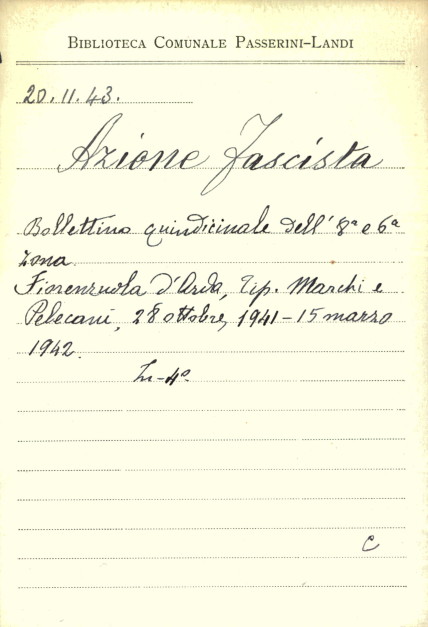 BIBLIOTECA COMUNALE PASSERINI-LANDI
20.11.43.
Azione Fascista
Bollettino quindicinale dell' 8ª e 6ª
zona
Fiorenzuola d'Arda, Tip. Marchi e
Pelecani, 28 ottobre, 1941 - 15 marzo
1942.
In-4º.
C